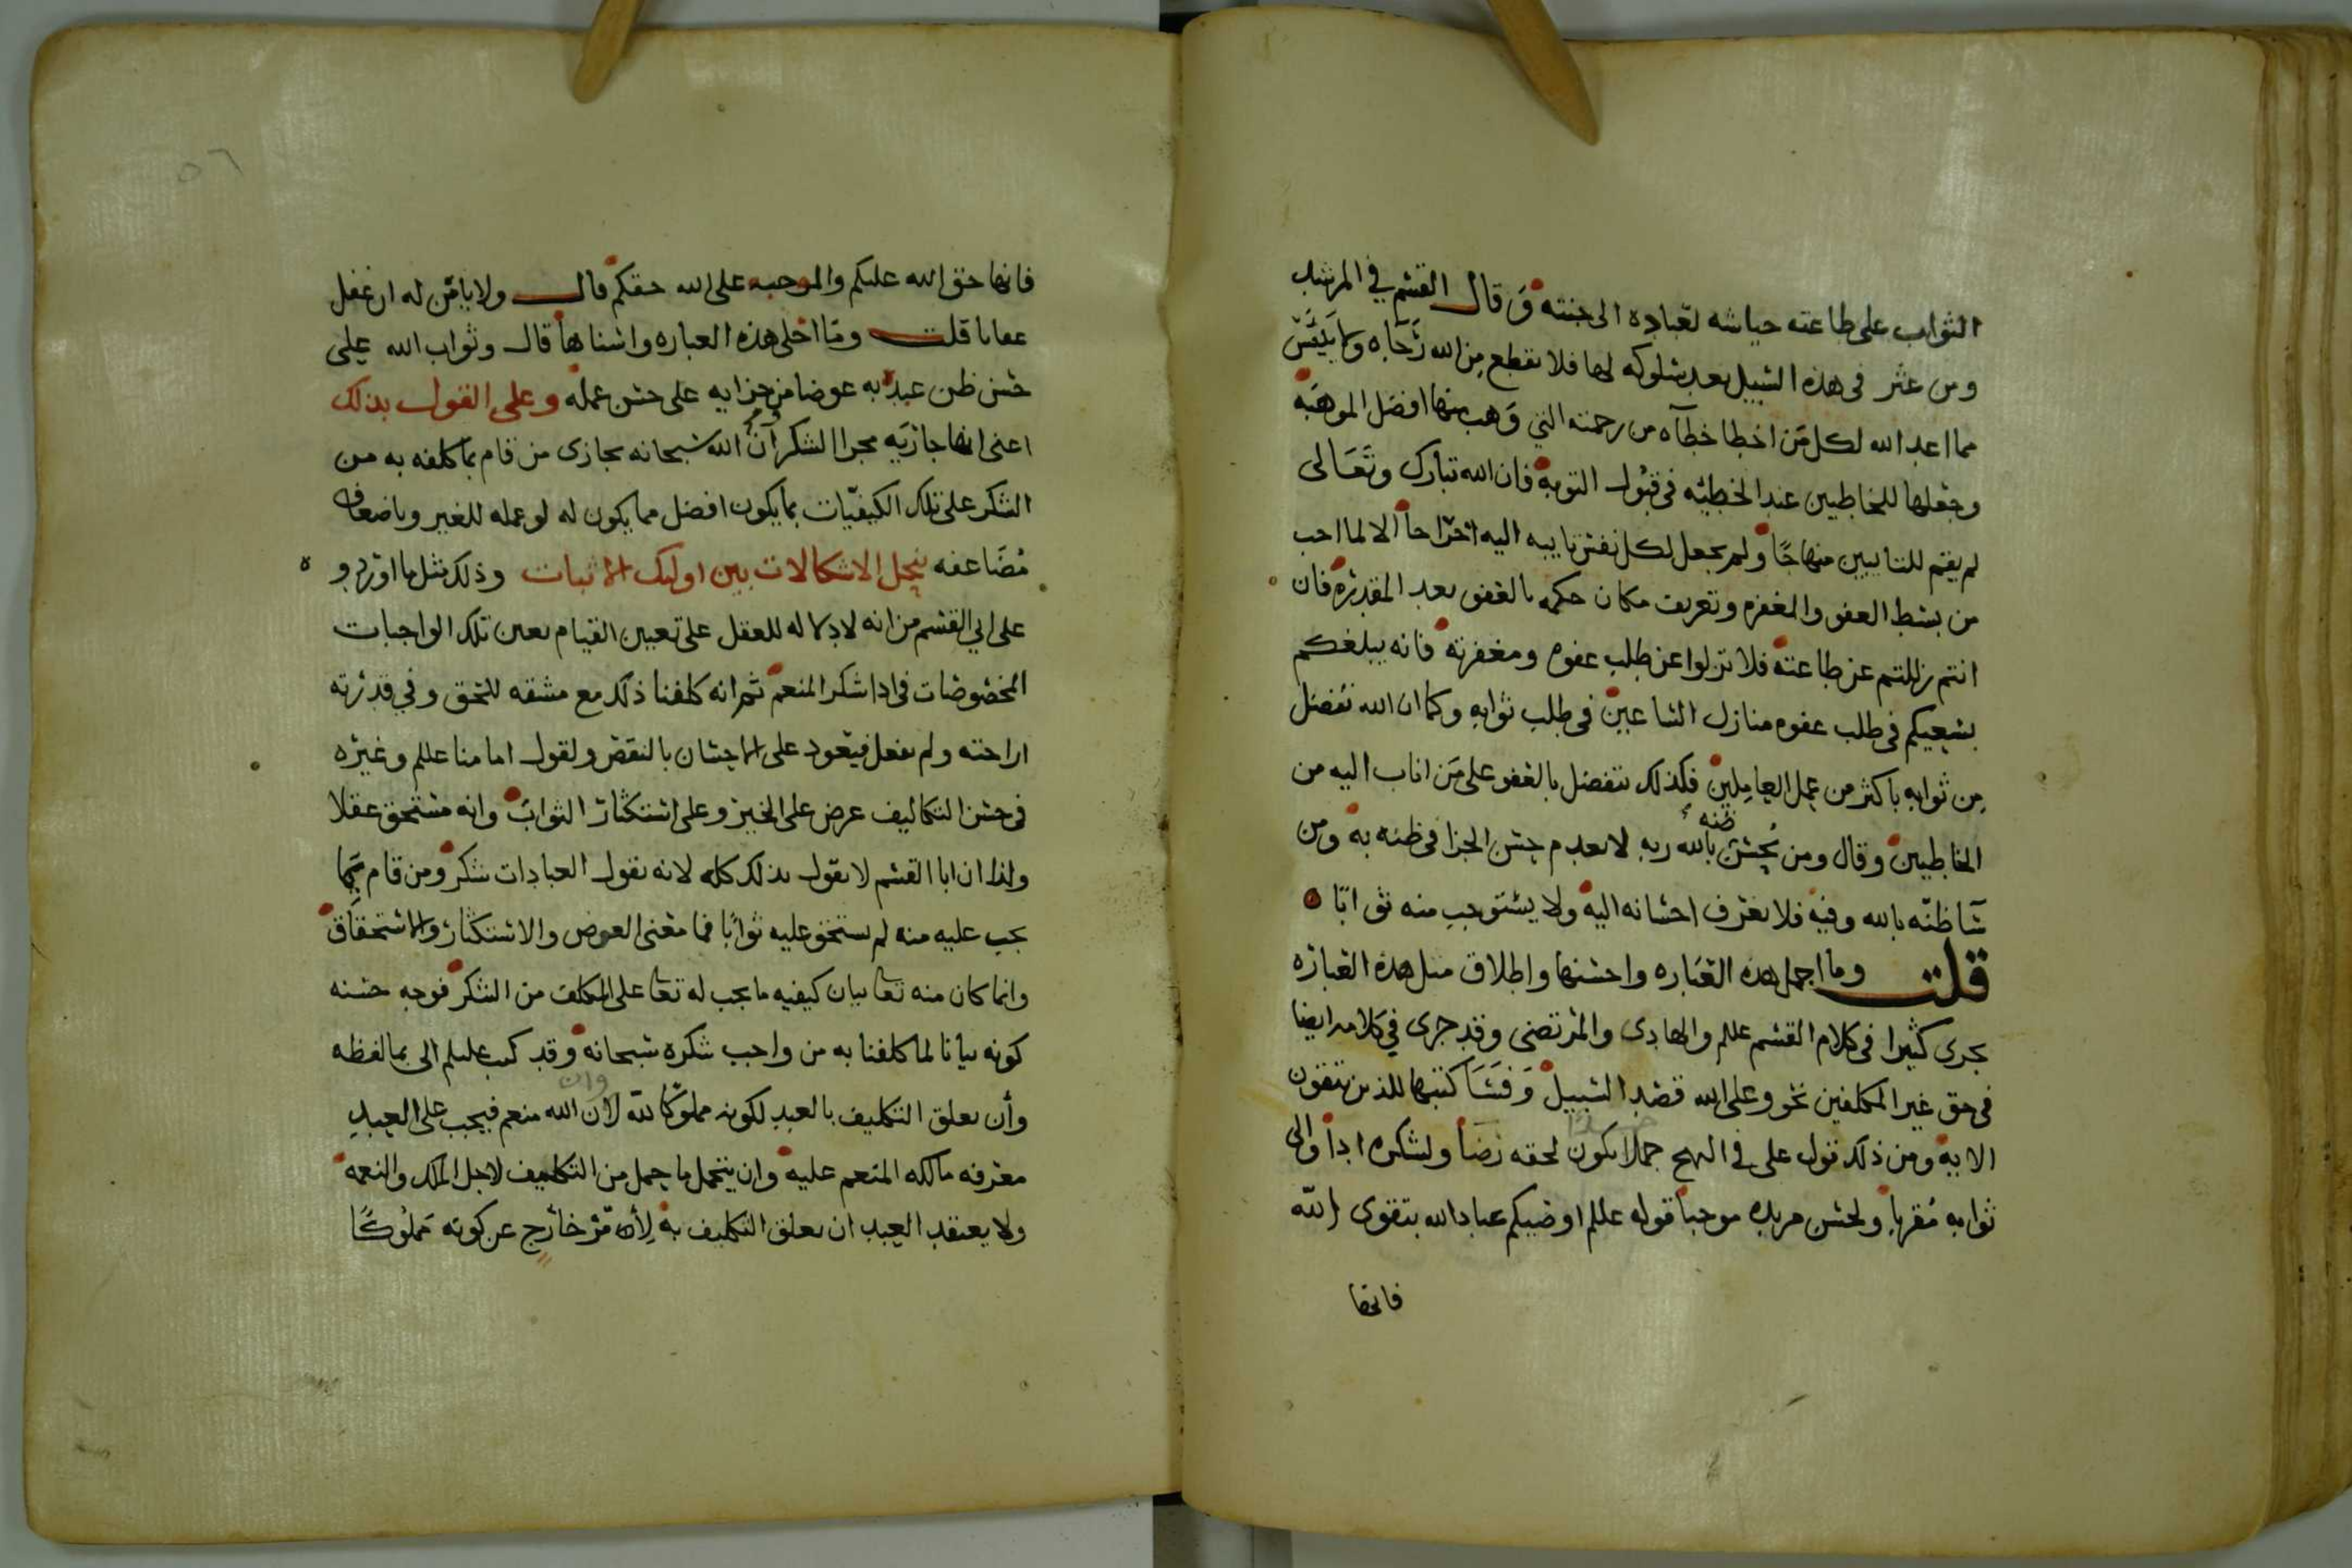 الثواب على طاعته حياشه لعباده الى جنته وقال القسم في المرشد
ومن عثر فى هذه السبيل بعد سلوكه لها فلا يقطع من الله رجاه ولا ييئس
مما اعد الله لكل من اخطا خطآه من رحمته التي وهب منها افضل الموهبه
وجعلها للخاطيين عند الخطيئه فى قبول التوبه فان الله تبارك وتعالى
لم يقم للتايبين منهاجا ولم يجعل لكل نفس تايبه اليه اخراجا الا لما احب
من بسط العفو والمغفره وتعريف مكان حكمه بالعفو بعد المقدره فان
انتم زللتم عن طاعته فلا تزلوا عن طلب عفوه ومغفرته فانه يبلغكم
بسعيكم فى طلب عفوه منازل الساعين فى طلب ثوابه وكما ان الله تفضل
من ثوابه باكثر من عمل العاملين فكذلك تفضل بالعفو على من اناب اليه من
الخاطيين وقال ومن يحسن بالله ظنه ربه لا يعدم حسن الجزا فى ظنه به ومن
سآ ظنه بالله وفيه فلا يعرف احسانه اليه ولا يستوجب منه ثوابا
قلت وما اجمل هذه العباره واحسنها واطلاق مثل هذه العباره
يجرى كثيرا فى كلام القسم عللم والهادى والمرتضى وقد جرى في كلامه ايضا
فى حق غير المكلفين نحو وعلى الله قصد السبيل وفسا كتبها للذين يتقون
الايه ومن ذلك قول على في النهج حمدا يكون لحقه رضا ولشكره ادا والى
ثوابه مقربا ولحسن مزيده موجبا قوله عللم اوصيكم عباد الله بتقوى الله
فانها
٥٦
فانها حق الله عليكم والموجبه على الله حقكم قال ولا يامن له ان غفل
عقابا قلت وما احلى هذه العباره واسناها قال وثواب الله على
حسن ظن عبده به عوضا من جزايه على حسن عمله وعلى القول بذلك
اعنى انها جاريه مجرا الشكر ان الله سبحانه يجازى من قام بما كلفه به من
الشكر على تلك الكيفيات بما يكون افضل مما يكون له لو عمله للغير وباضعاف
مضاعفه ينحل الاشكالات بين اوليك الاثبات وذلك مثل ما اورد و
على ابي القسم من انه لا دلاله للعقل على تعيين القيام بعين تلك الواجبات
المخصوصات فى ادا شكر المنعم ثم انه كلفنا ذلك مع مشقه تلحق وفي قدرته
اراحته ولم يفعل فيعود على الاحسان بالنقض ولقول امامنا عللم وغيره
فى حسن التكاليف عرض على الخير وعلى استكثار الثواب وانه مستحق عقلا
ولذا ان ابا القسم لا يقول بذلك كله لانه يقول العبادات شكر ومن قام بما
يجب عليه منه لم يستحق عليه ثوابا فما معنى العوض والاستكثار والاستحقاق
وانما كان منه تعا بيان كيفيه ما يجب له تعا على المكلف من الشكر فوجه حسنه
كونه بيانا لما كلفنا به من واجب شكره سبحانه وقد كتب عليلم الى بما لفظه
وأن تعلق التكليف بالعبد لكونه مملوكا لله وان لان الله منعم فيجب على العبد
معرفه مالكه المنعم عليه وان يتحمل ما حمل من التكليف لاجل الملك والنعمه
ولا يعتقد العبد ان تعلق التكليف به لأمر خارج عن كونه مملوكا